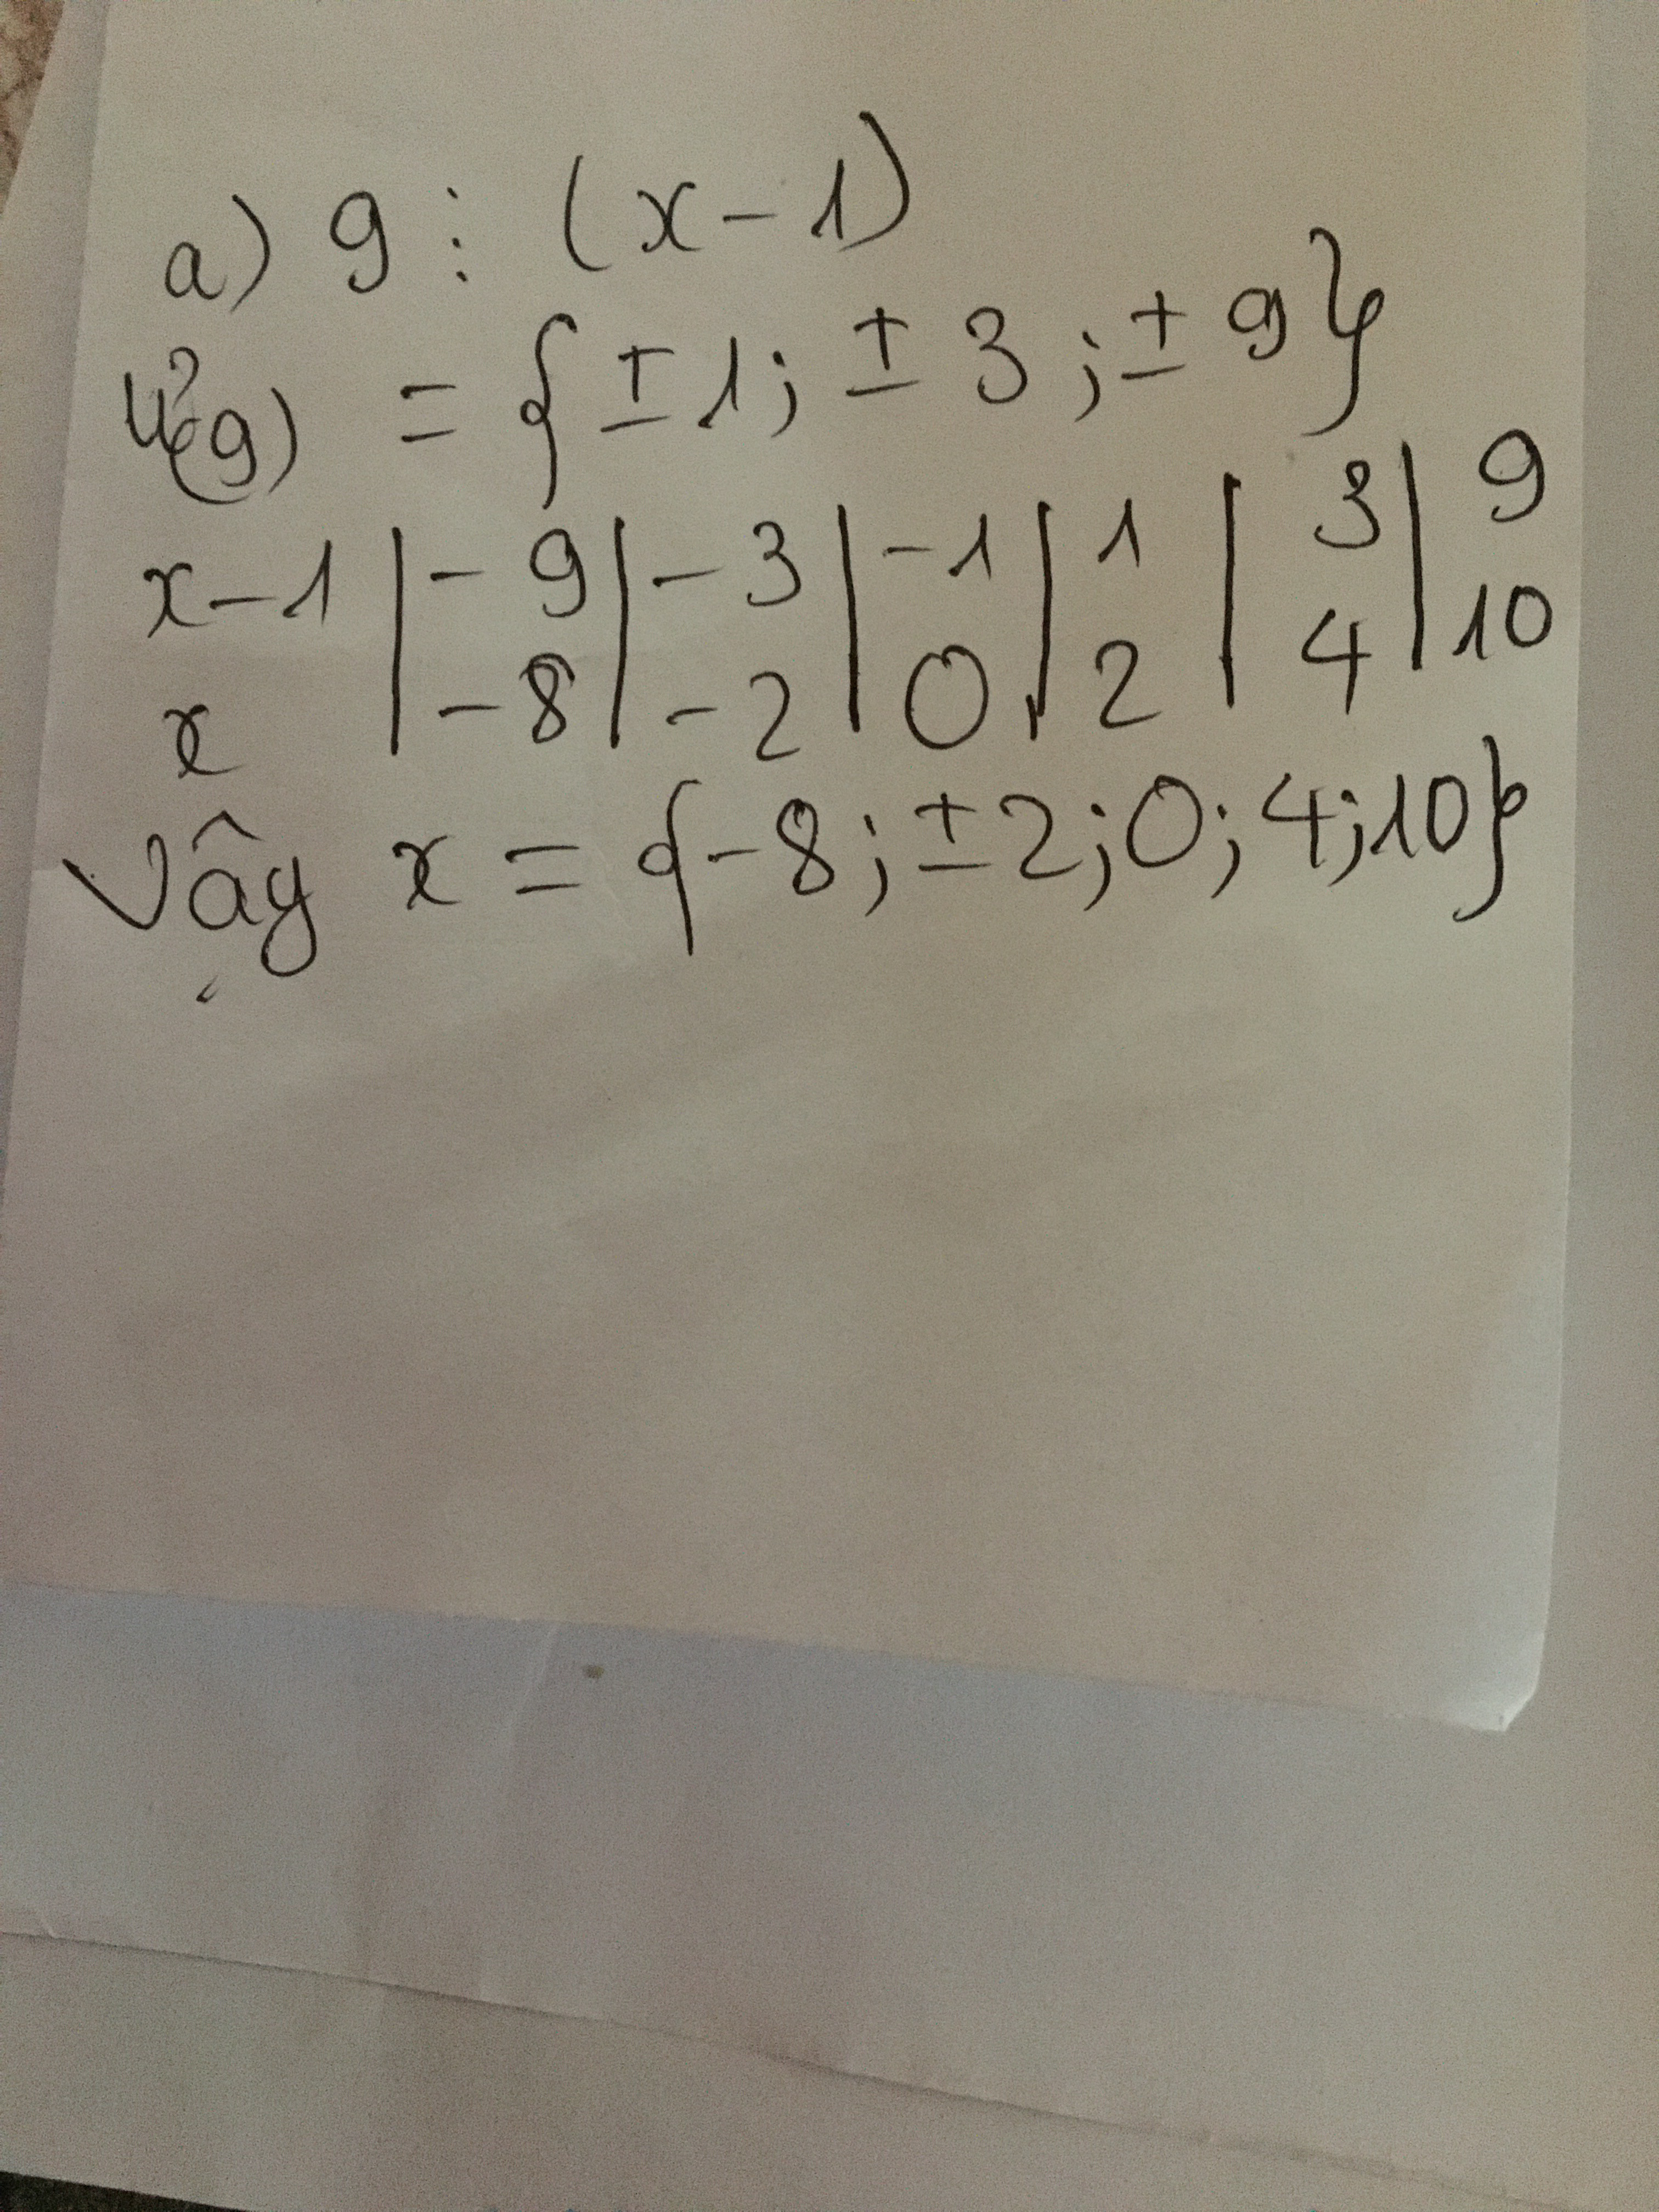 a) 9 ⋮ (x - 1)
Ư(9) = {±1; ±3; ±9}
x-1 | -9 | -3 | -1 | 1 | 3 | 9
x | -8 | -2 | 0 | 2 | 4 | 10
Vậy x = {-8; ±2; 0; 4; 10}